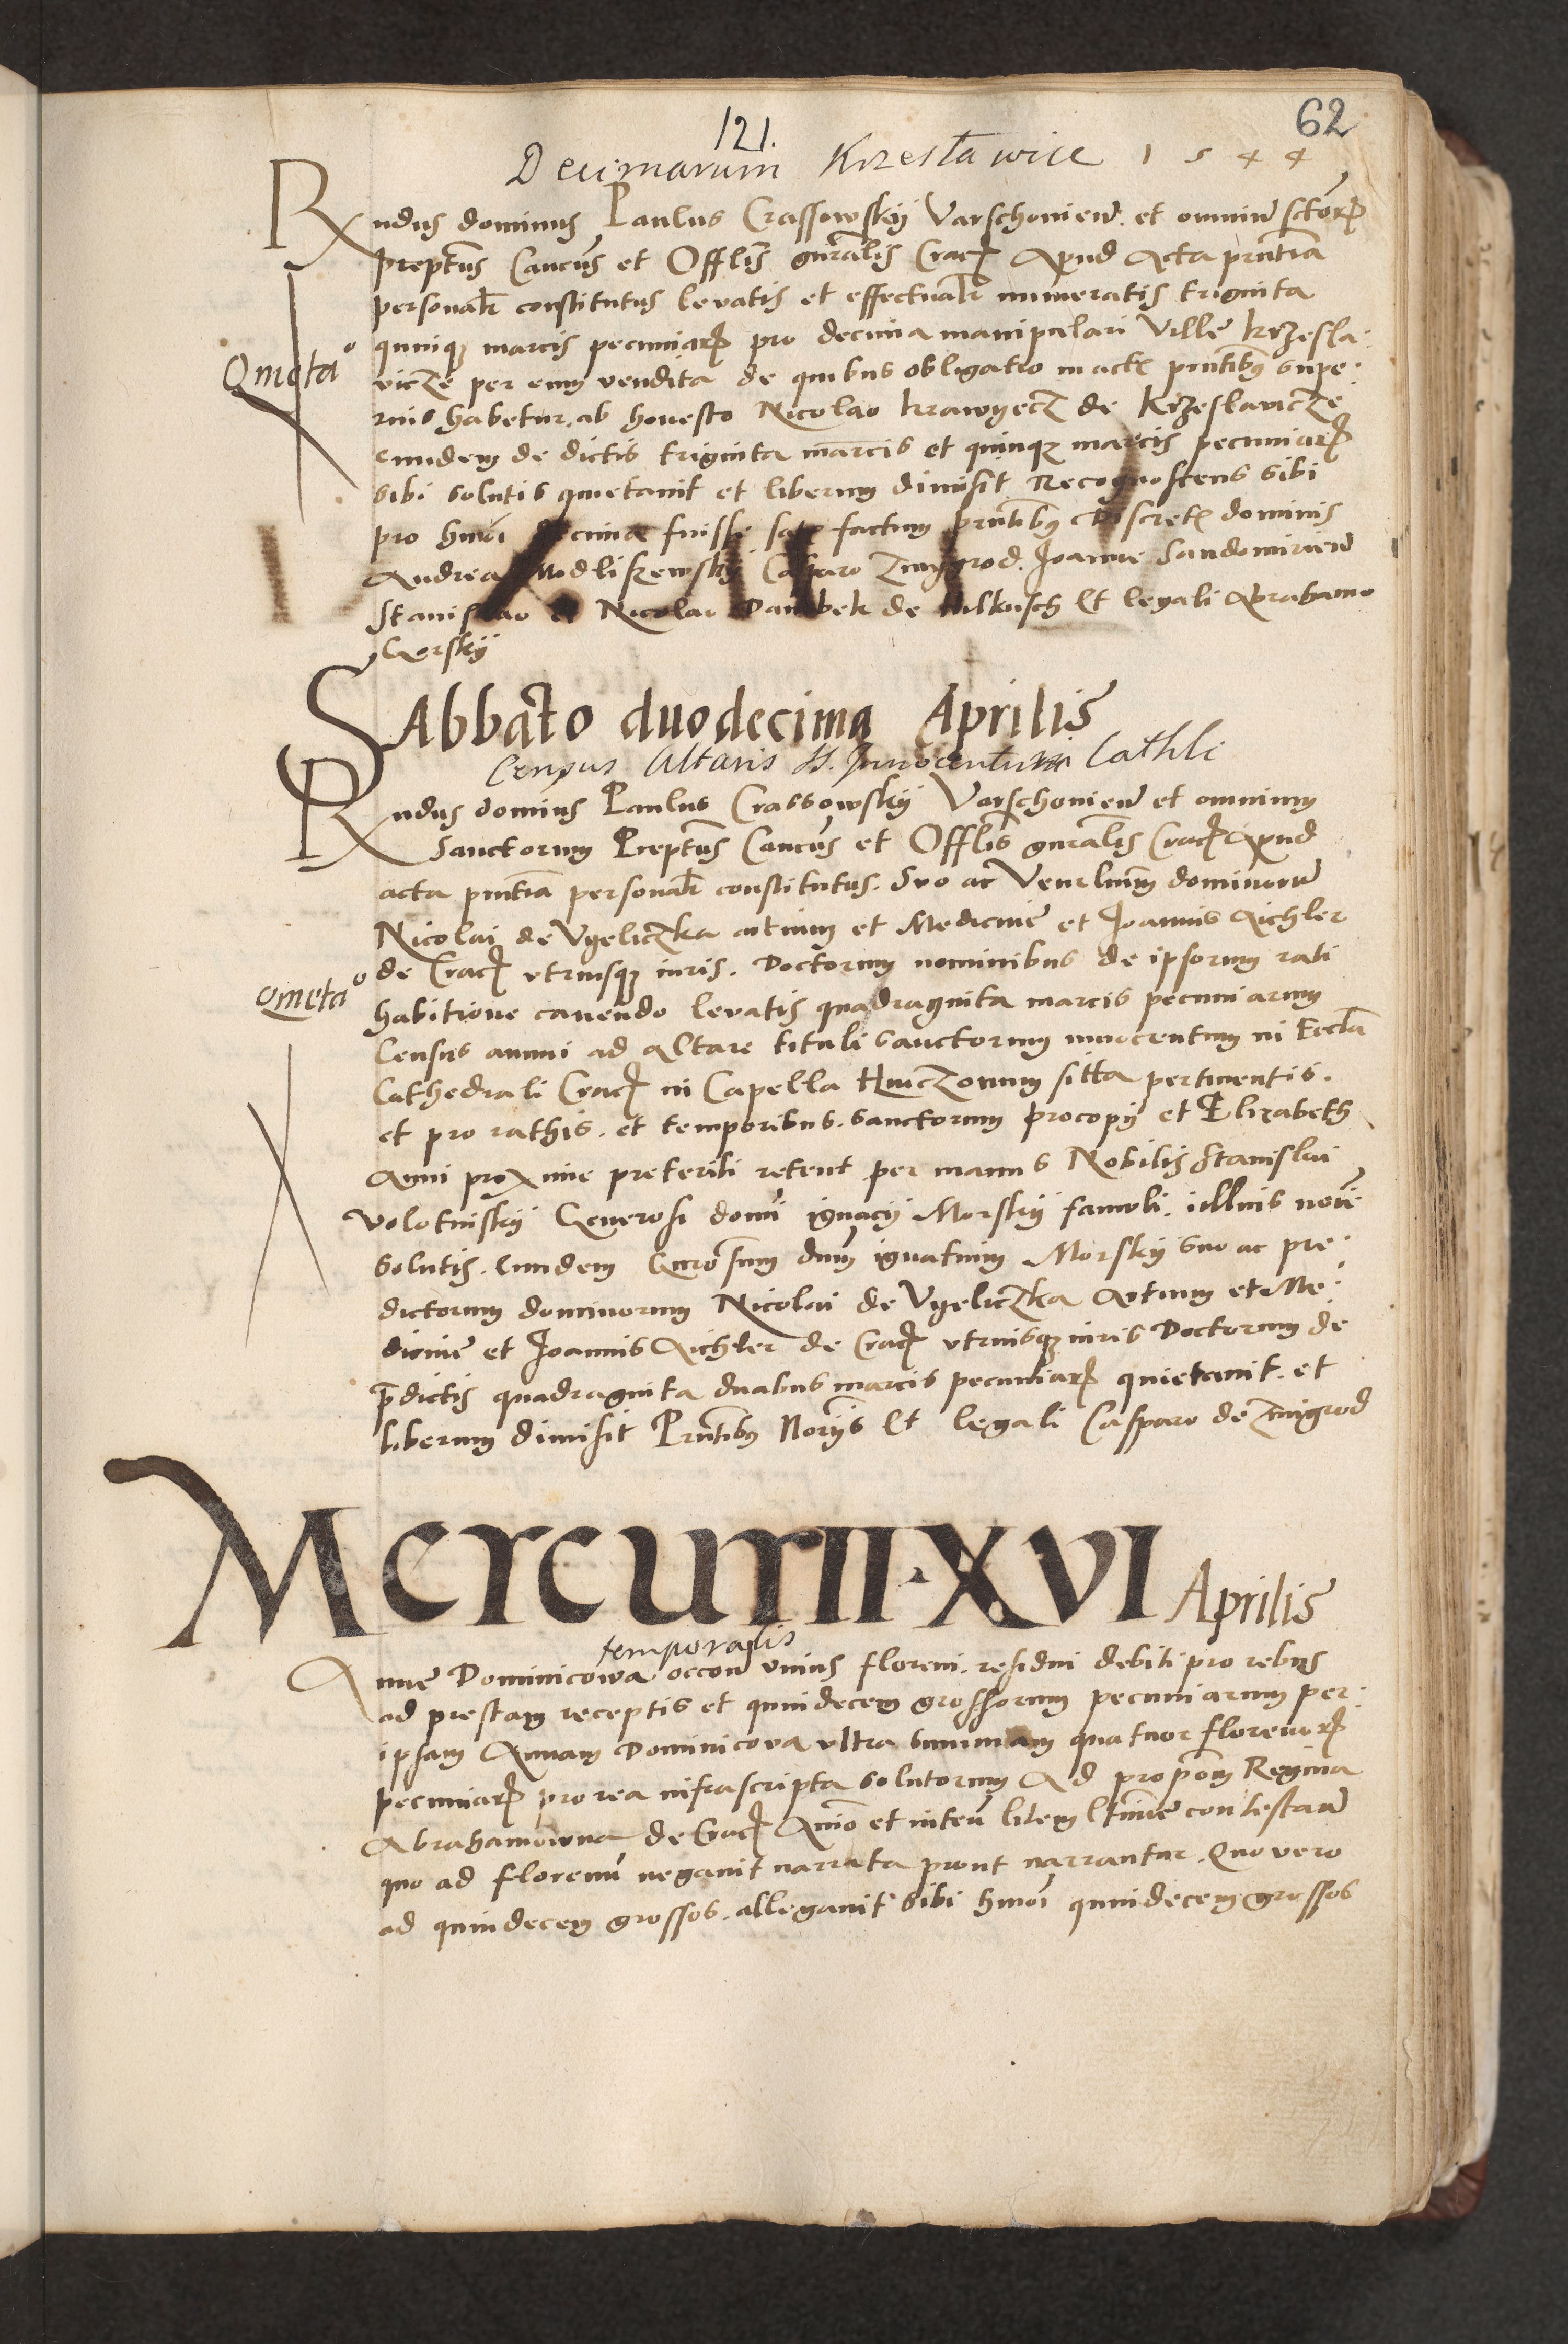 62
121.
Decimarum Krzesławice 1544
Rndus dominus Paulus Crassowskij Varschovien. et omniu sctor
preptus Cancus et Offlis gnralis Crac Apud Acta pntia
personalr constitutus levatis et effectualr numeratis triginta
quinq marcis pecuniar pro decima manipulari Ville krzesla:
Qmeta° vicze per eum vendita de quibus obligatio in act pntibus supe:
rius habetur. ab honesto Nicolao krawyecz de krzeslavicze
eundem de dictis triginta marcis et quinq marcis pecuniar
sibi solutis quietavit et liberum dimisit Recognoscens sibi
pro hmoi decima fuisse satis factum pntibus discret dominis
Andrea Modliszewskij Casparo Zmygrod. Joanne Sandomirien
Stanislao et Nicolao de Ilkusch et legali Abrahamo
Gorskij
SAbbato duodecima Aprilis
Census Altaris SS. Innocentum Cathli
Rndus dominus Paulus Crassowskij Varschovien et omnium
Sanctorum Preptus Cancus et Offlis gnralis Crac Apud
acta pntia personalr constitutus. Suo ac Venrlium dominoru
Nicolai de Vyeliczka artium et Medicine et Joannis Aichler
de Crac utriusq iuris. Doctorum nominibus de ipsorum rati
Qmeta° habitione cavendo levatis quadraginta marcis pecuniarum
Census annui ad Altare tituli sanctorum innocentum in Eccla
Cathedrali Crac in Capella sitta pertinentis.
et pro rathis. et temporibus. sanctorum procopij et Elizabeth
Anni proxime preteriti retent per manus Nobilis Stanislai
Volotniskij Generosi domi ignacij Morskij famuli. illius noie
solutis. Eundem Gnrosum dnum ignatium Morskij suo ac pre:
dictorum dominorum Nicolai de Vyeliczka Artium et Me:
dicine et Joannis Aichler de Crac utriusq iuris Doctorum de
pdictis quadraginta duabus marcis pecuniar quietavit. et
liberum dimisit Pntibus Norijs et legali Casparo de Zmigrod
MErcurii.XVI Aprilis
temporalis
Anne Dominicowa occon unius floreni. residui debiti pro rebus
ad prestam receptis et quindecem grossorum pecuniarum per:
ipsam Annam Dominicova ultra summam quatuor florenor
pecuniar pro rea infrascripta solutorum Ad propom Regina
Abrahamowna de Crac Anio et inten litem ltime contestan
quo ad florenu negavit narrata prout narrantur. Quo vero
ad quindecem grossos. allegavit sibi hmoi quindecem grossos